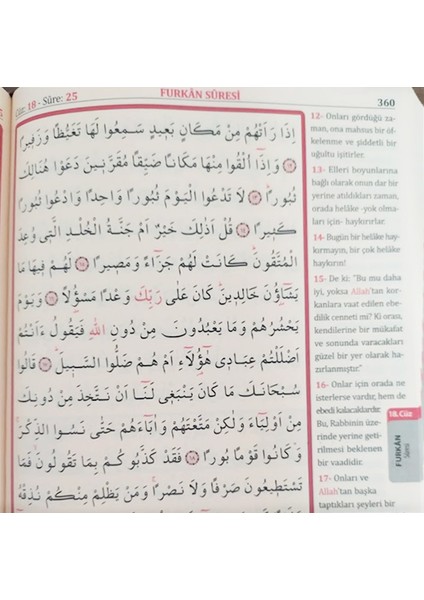 Cüz: 18 - Sûre: 25
FURKÂN SÛRESİ
360
اِذَا رَاَتْهُمْ مِنْ مَكَانٍ بَعٖيدٍ سَمِعُوا لَهَا تَغَيُّظًا وَزَفٖيرًا
﴿١٢﴾ وَاِذَٓا اُلْقُوا مِنْهَا مَكَانًا ضَيِّقًا مُقَرَّنٖينَ دَعَوْا هُنَالِكَ
ثُبُورًا ﴿١٣﴾ لَا تَدْعُوا الْيَوْمَ ثُبُورًا وَاحِدًا وَادْعُوا ثُبُورًا
كَثٖيرًا ﴿١٤﴾ قُلْ اَذٰلِكَ خَيْرٌ اَمْ جَنَّةُ الْخُلْدِ الَّتٖي وُعِدَ
الْمُتَّقُونَ كَانَتْ لَهُمْ جَزَٓاءً وَمَصٖيرًا ﴿١٥﴾ لَهُمْ فٖيهَا مَا
يَشَٓاؤُنَ خَالِدٖينَ كَانَ عَلٰى رَبِّكَ وَعْدًا مَسْؤُلًا ﴿١٦﴾ وَيَوْمَ
يَحْشُرُهُمْ وَمَا يَعْبُدُونَ مِنْ دُونِ اللّٰهِ فَيَقُولُ ءَاَنْتُمْ
اَضْلَلْتُمْ عِبَادٖي هٰٓؤُلَٓاءِ اَمْ هُمْ ضَلُّوا السَّبٖيلَ ﴿١٧﴾ قَالُوا
سُبْحَانَكَ مَا كَانَ يَنْبَغٖي لَنَٓا اَنْ نَتَّخِذَ مِنْ دُونِكَ
مِنْ اَوْلِيَٓاءَ وَلٰكِنْ مَتَّعْتَهُمْ وَاٰبَٓاءَهُمْ حَتّٰى نَسُوا الذِّكْرَ
وَكَانُوا قَوْمًا بُورًا ﴿١٨﴾ فَقَدْ كَذَّبُوكُمْ بِمَا تَقُولُونَ فَمَا
تَسْتَطٖيعُونَ صَرْفًا وَلَا نَصْرًا وَمَنْ يَظْلِمْ مِنْكُمْ نُذِقْهُ
12- Onları gördüğü za-
man, ona mahsus bir öf-
kelenme ve şiddetli bir
uğultu işitirler.
13- Elleri boyunlarına
bağlı olarak onun dar bir
yerine atıldıkları zaman,
orada helâke -yok olma-
ları için- haykırırlar.
14- Bugün bir helâke hay-
kırmayın, bir çok helâke
haykırın!
15- De ki: "Bu mu daha
iyi, yoksa Allah'tan kor-
kanlara vaat edilen ebe-
dilik cenneti mi? Ki orası,
kendilerine bir mükafat
ve sonunda varacakları
güzel bir yer olarak ha-
zırlanmıştır."
16- Onlar için orada ne
isterlerse vardır, hem de
ebedi kalacaklardır.
Bu, Rabbinin üze-
rinde yerine geti-
rilmesi beklenen
bir vaadidir.
17- Onları ve
Allah'tan başka
taptıkları şeyleri bir
18.Cüz
FURKÂN
Sûresi